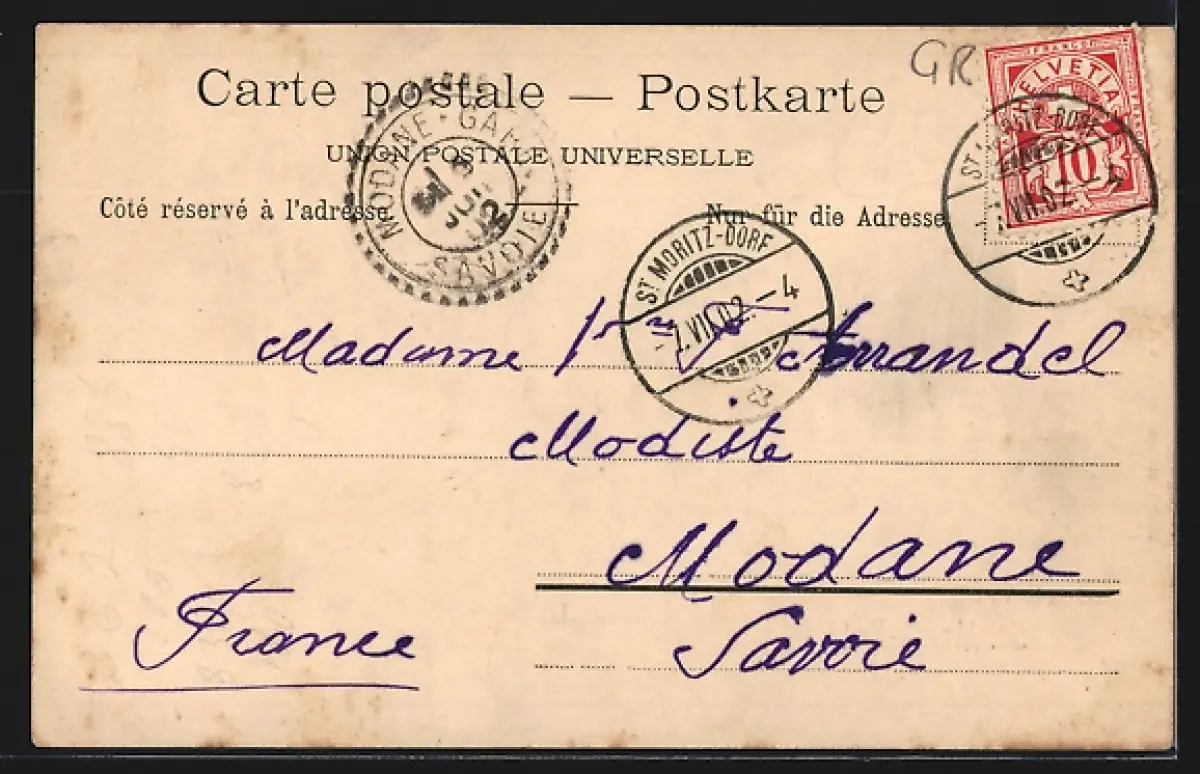 GR.
FRANCO
HELVETIA
10
Carte postale — Postkarte
UNION POSTALE UNIVERSELLE
Côté réservé à l'adresse.
Nur für die Adresse
MODANE - GARE
SAVOIE
ST MORITZ-DORF
VII.02.–4
ST MORITZ-DORF
2.VII.02.–4
Madame
Modiste
Modane
Savoie
France